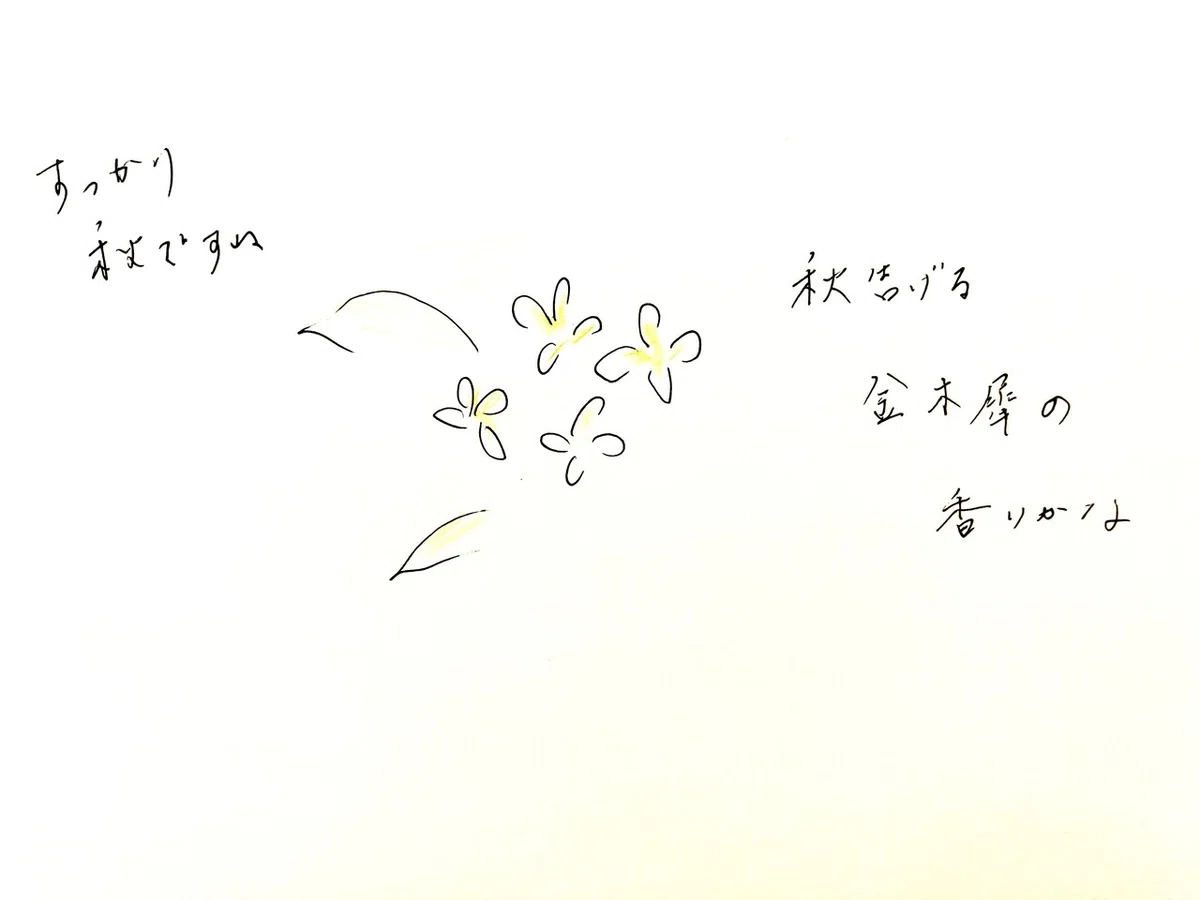 すっかり
秋ですね
秋告げる
金木犀の
香りかな